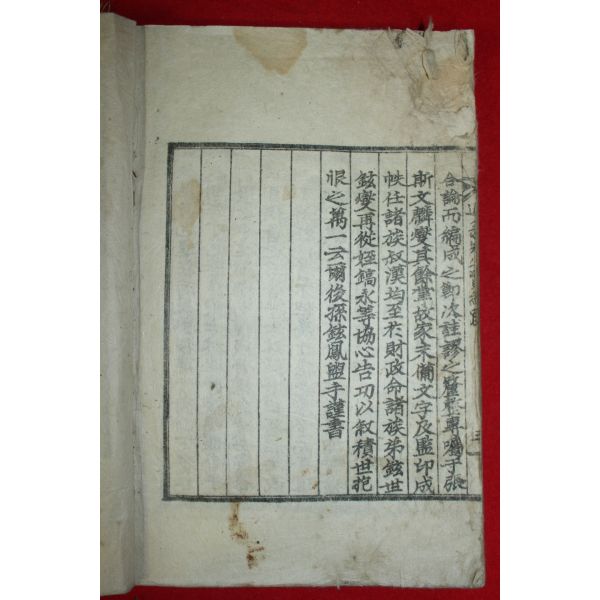 合論而編成之鄭汝註謬之釐整專囑于張
斯文麟燮其餘黨故家未備文字及監印成
帙任諸族叔漢均至於財政命諸族弟鉉世
鉉燮再從姪鎬永等協心告功以敘積世抱
恨之萬一云爾後孫鉉鳳盥手謹書